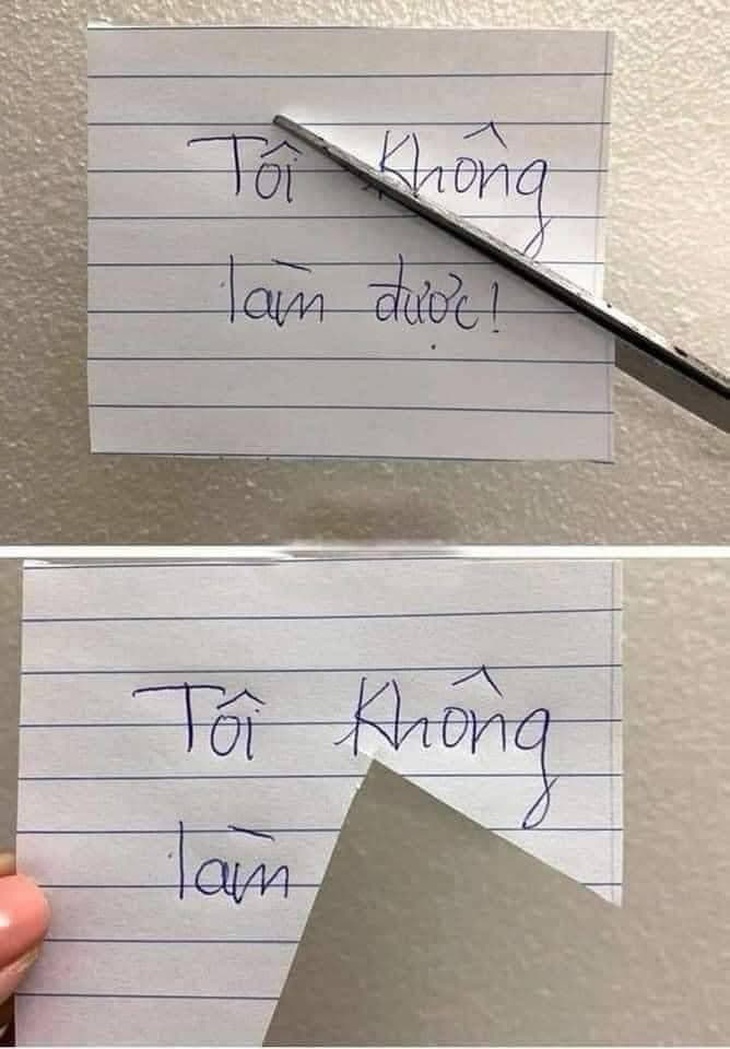 Tôi Không
làm được!
Tôi Không
làm